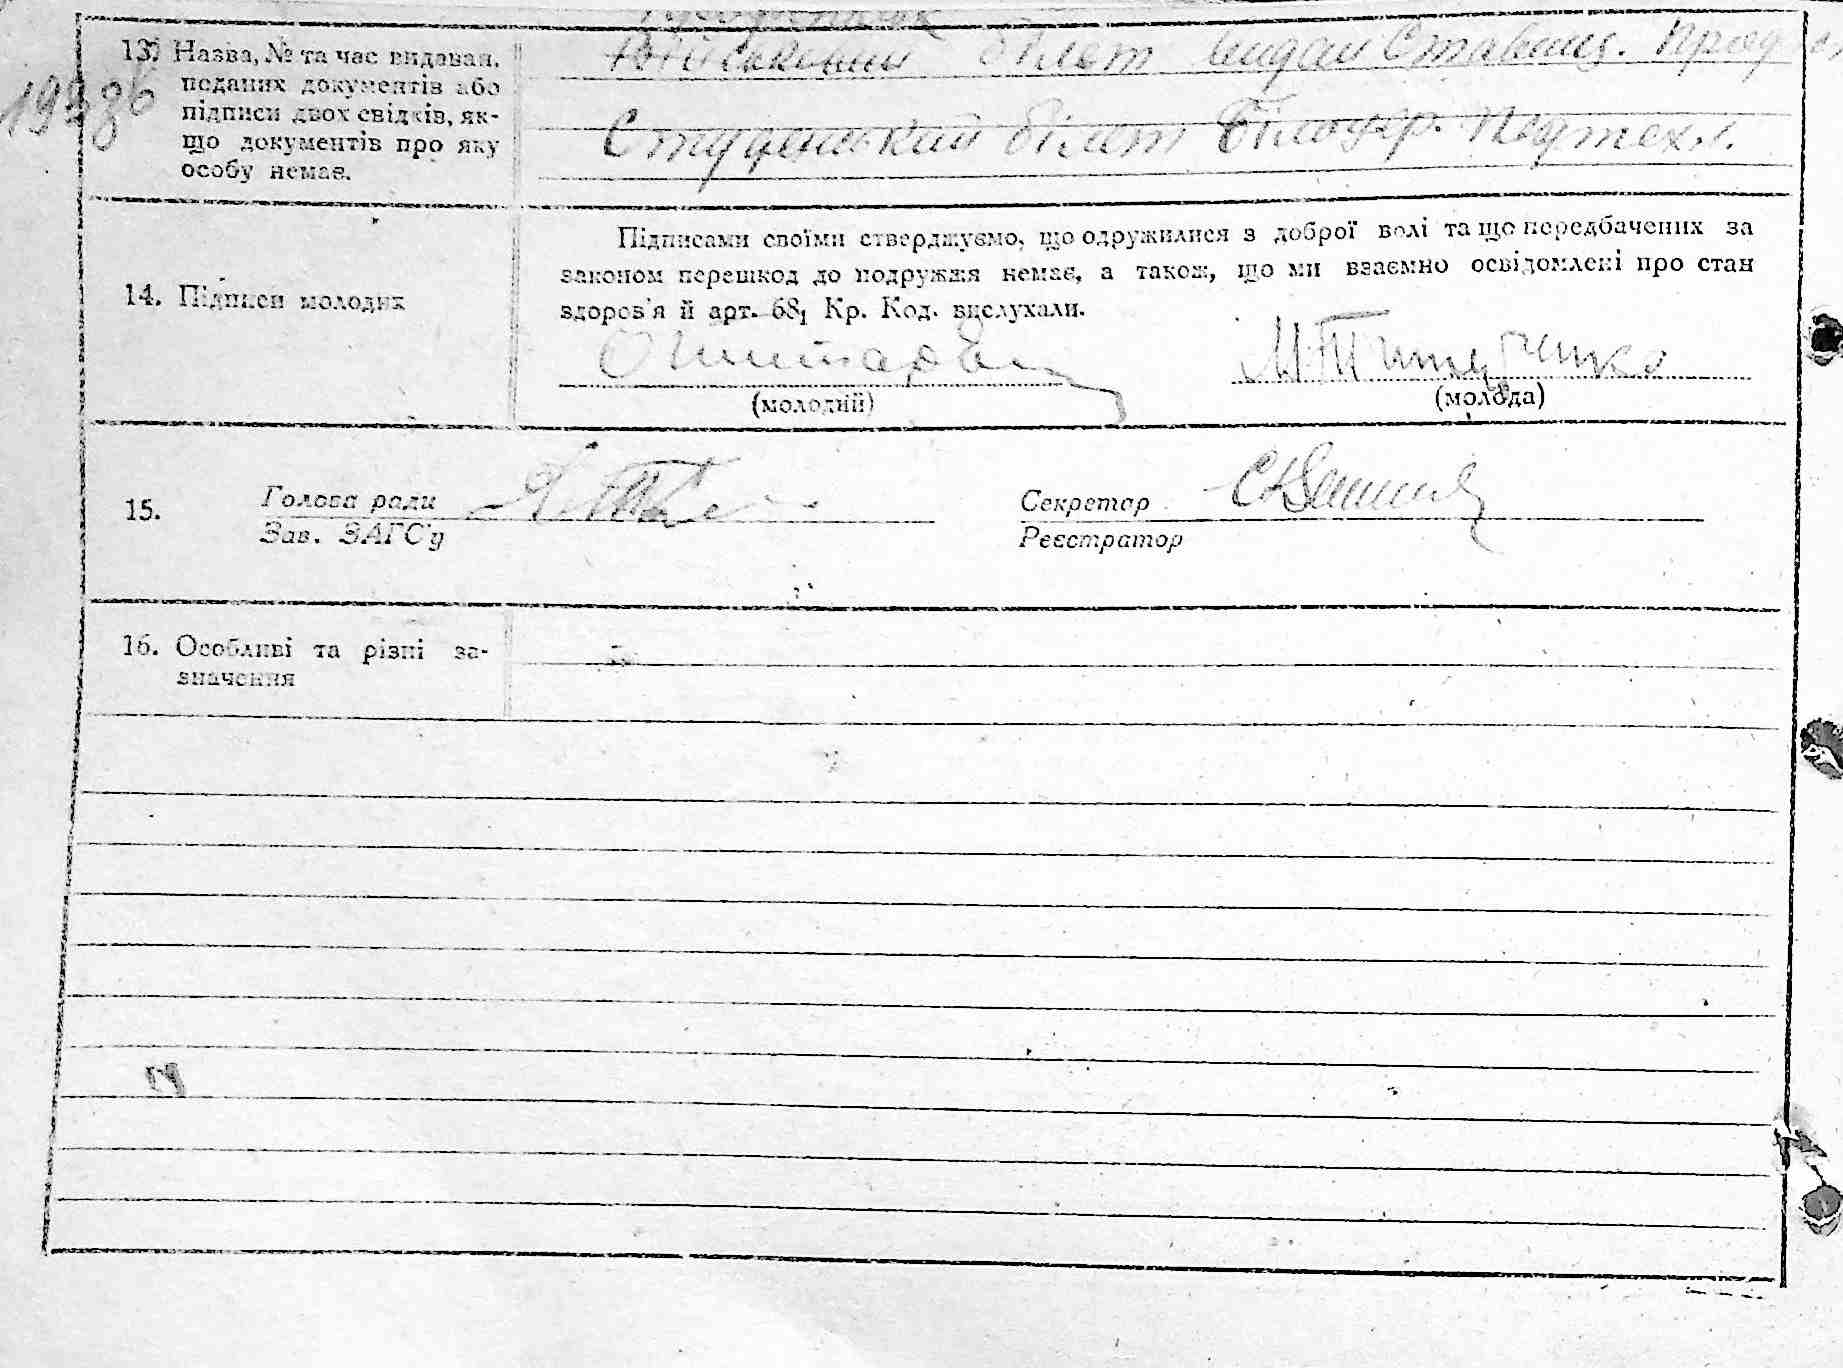 13) Назва, № та час видаван.
поданих документів або
підписи двох свідків, як-
що документів про яку
особу немає.
білет видан Ставищ.
Студенський білет Білоцер. Педтехн.
14. Підписи молодих
Підписами своїми стверджуємо, що одружилися з доброї волі та що передбачених за
законом перешкод до подружжя немає, а також, що ми взаємно освідомлені про стан
здоров'я й арт. 68₁ Кр. Код. вислухали.
(молодий)
(молода)
15.
Голова ради
Зав. ЗАГС'у
Секретар
Реєстратор
16. Особливі та різні за-
значення